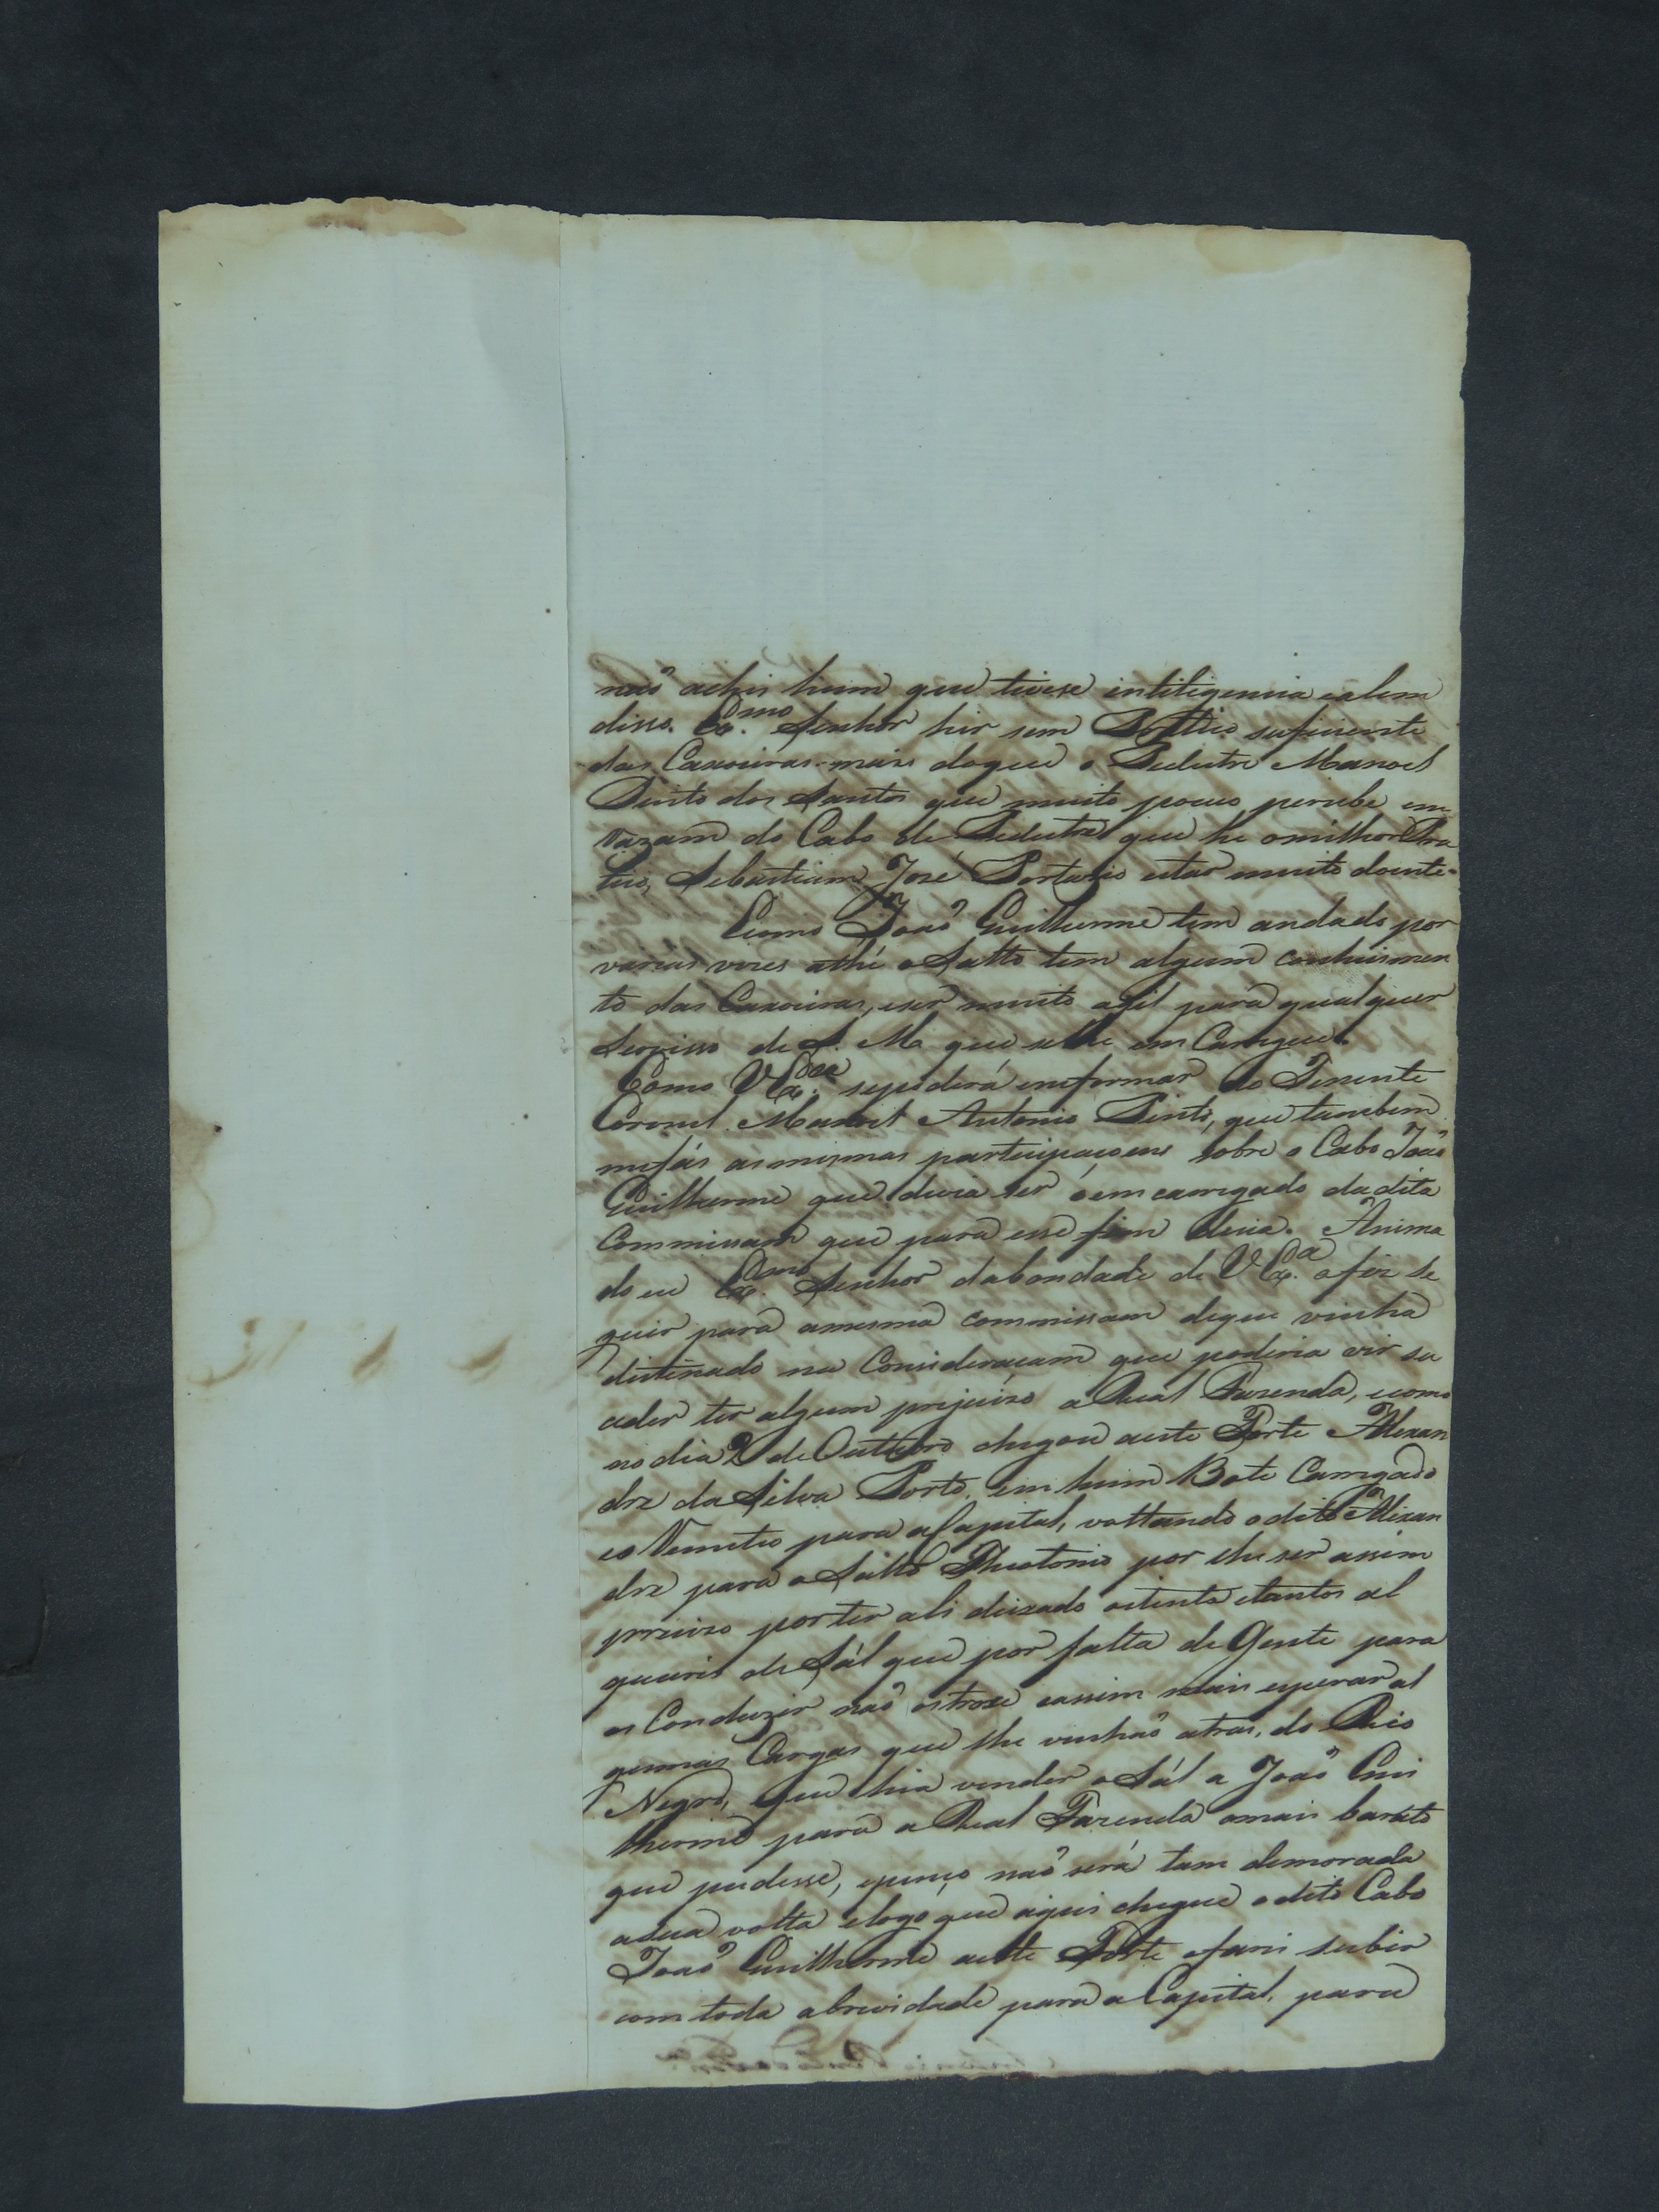 naõ achei hum que tivese intiligencia ealem
disso. Ex.mo Senhor hir sem Pratico suficiente
das Caxoeiras mais doque o Pedestre Manoel
Pinto dos Santos que muito pouco percebe em
razam do Cabo de Pedestre que he omilhor Pra
tico, Sebastiam José Portario estar muito doente.
Como Joaõ Guilherme tem andado por
varias vezes athé o Salto tem algum conhecimen
to das Caxoeiras, eser muito agil para qualquer
Servisso de S. M. que selhe em Carregue.
Como V Ex.cia sepoderá emformar do Tenente
Coronel Manoel Antonio Pinto, que tambem
mefás asmesmas participaçoens sobre o Cabo Joaõ
Guilherme que devia ser oemcarregado dadita
Commissam que para esse fim decia. Anima
do eu Ex.mo Senhor dabondade de V Ex.a ofiz se
guir para amesma commissam deque vinha
distinado na Consideraçam que poderia vir su
ceder ter algum prejuizo aReal Fazenda, ecomo
no dia 2 de Outubro chegou aeste Forte Alexan
dre da Silva Porto, em hum Bote Carregado
eo Remetio para aCapital, voltando odito Alexan
dre para o Salto Theotonio por lhe ser assim
precizo por ter ali deixado oitenta etantos al
queires de Sál que por falta de Gente para
os Conduzir naõ ostroxe eassim mais esperar al
gumas Cargas que lhe vinhaõ atras, do Rio
Negro, que hia vender o Sál a Joaõ Gui
lherme para a Real Fazenda omais barato
que pudesse, epenço naõ será tam demorada
asua volta elogo que aqui chegue odito Cabo
Joaõ Guilherme aeste Forte ofarei subir
com toda abrevidade para aCapital, para